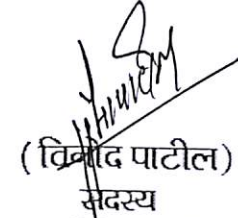 (विनोद पाटील)
सदस्य